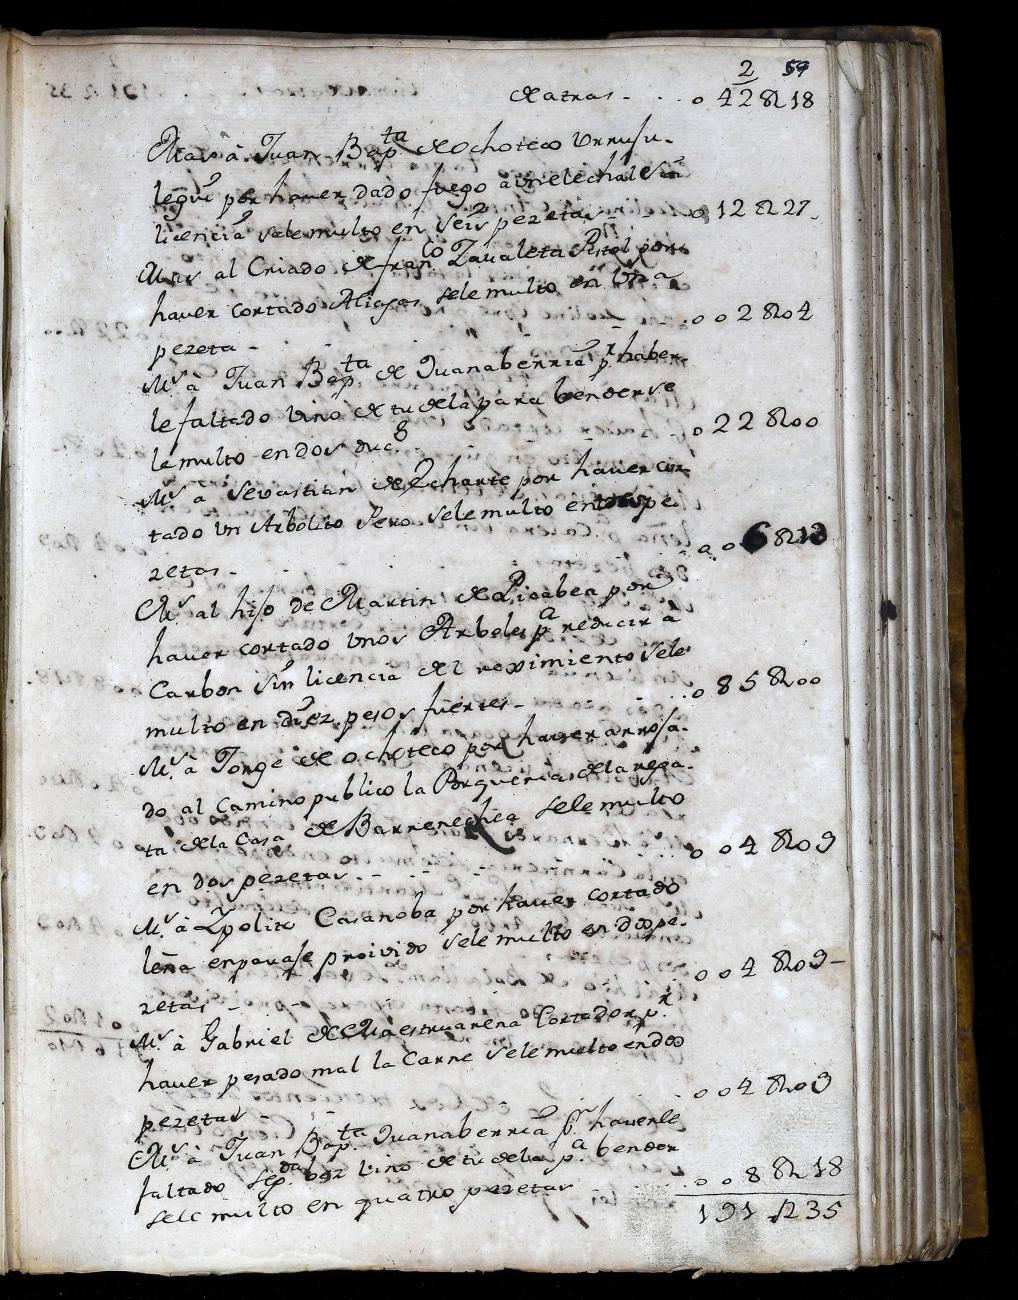 2 59
de atras - . . . 042 R 18
Mas â Juan Bapta de ochoteco Urrusu-
legui por haver dado fuego â un elechal sin
licencia sele multo en seis pezetas - 012 R 27
Mas al Criado de franco Zavaleta Pistol por
haver cortado Aliagas sele multo en Una
pezeta - . . 002 R 04
Ms â Juan Bapta de Juanaberria pr haber-
le faltado vino de tudela para benderse
le multo en dos ducs . 022 R 00
Ms â Sevastian de Echarte por haver cor-
tado Un Arbolito Pero sele multo en tres pe
zetas - . . 006 R 13
Ms al hijo de Martin de Picabea por
haver cortado unos Arboles pa reducir â
Carbon sin licencia del reximiento sele
multo en diez pesos fuertes - . . 085 R 00
Ms â Jorge de ochoteco por haver arroja-
do al Camino publico la Porqueria de la rega-
ta de la Casa de Barrenechea sele multo
en dos pezetas . - . . 004 R 09
Ms â Ypolito Casanoba por haver cortado
leña en paraje proivido sele multo en dos pe-
zetas - . - 004 R 09 -
Ms â Gabriel de Maestruarena Cortador pr
haver pesado mal la Carne sele multo en dos
pezetas . - . 004 R 09
Ms â Juan Bapta Juanaberria pr haverle
faltado segda bez vino de tudela pa bender
sele multo en quatro pezetas . . 008 R 18
191 R 35